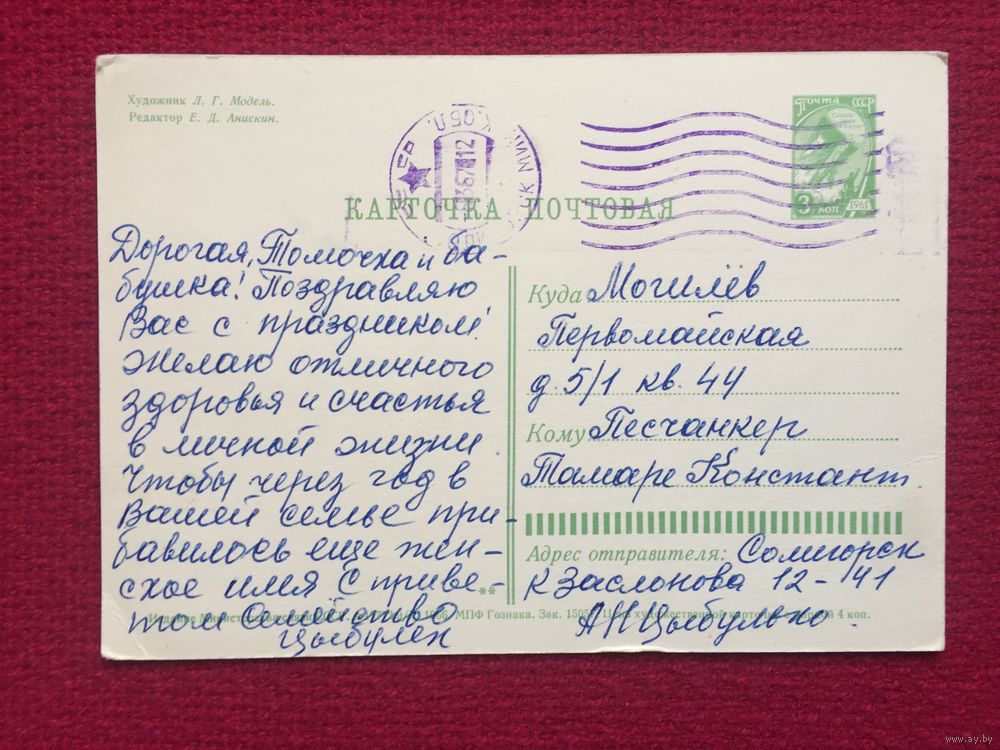 Художник Л. Г. Модель.
Редактор Е. Д. Анискин.
Почта СССР
3 коп 1961
КАРТОЧКА ПОЧТОВАЯ
Дорогая, Томочка и ба-
бушка! Поздравляю
Вас с праздником!
Желаю отличного
здоровья и счастья
в личной жизни.
Чтобы через год в
Вашей семье при-
бавилось еще жен-
ское имя С приве-
том Семейство
Цыбулек
Куда Могилёв
Первомайская
д. 5/1 кв. 44
Кому Песчанкер
Тамаре Констант.
Адрес отправителя: Солигорск
К Заслонова 12-41
А П Цыбулько.
**
Издание Министерства 1966. МПФ Гознака. Зак. 1505 Цена художественной карточки с маркой 4 коп.
www.ay.by